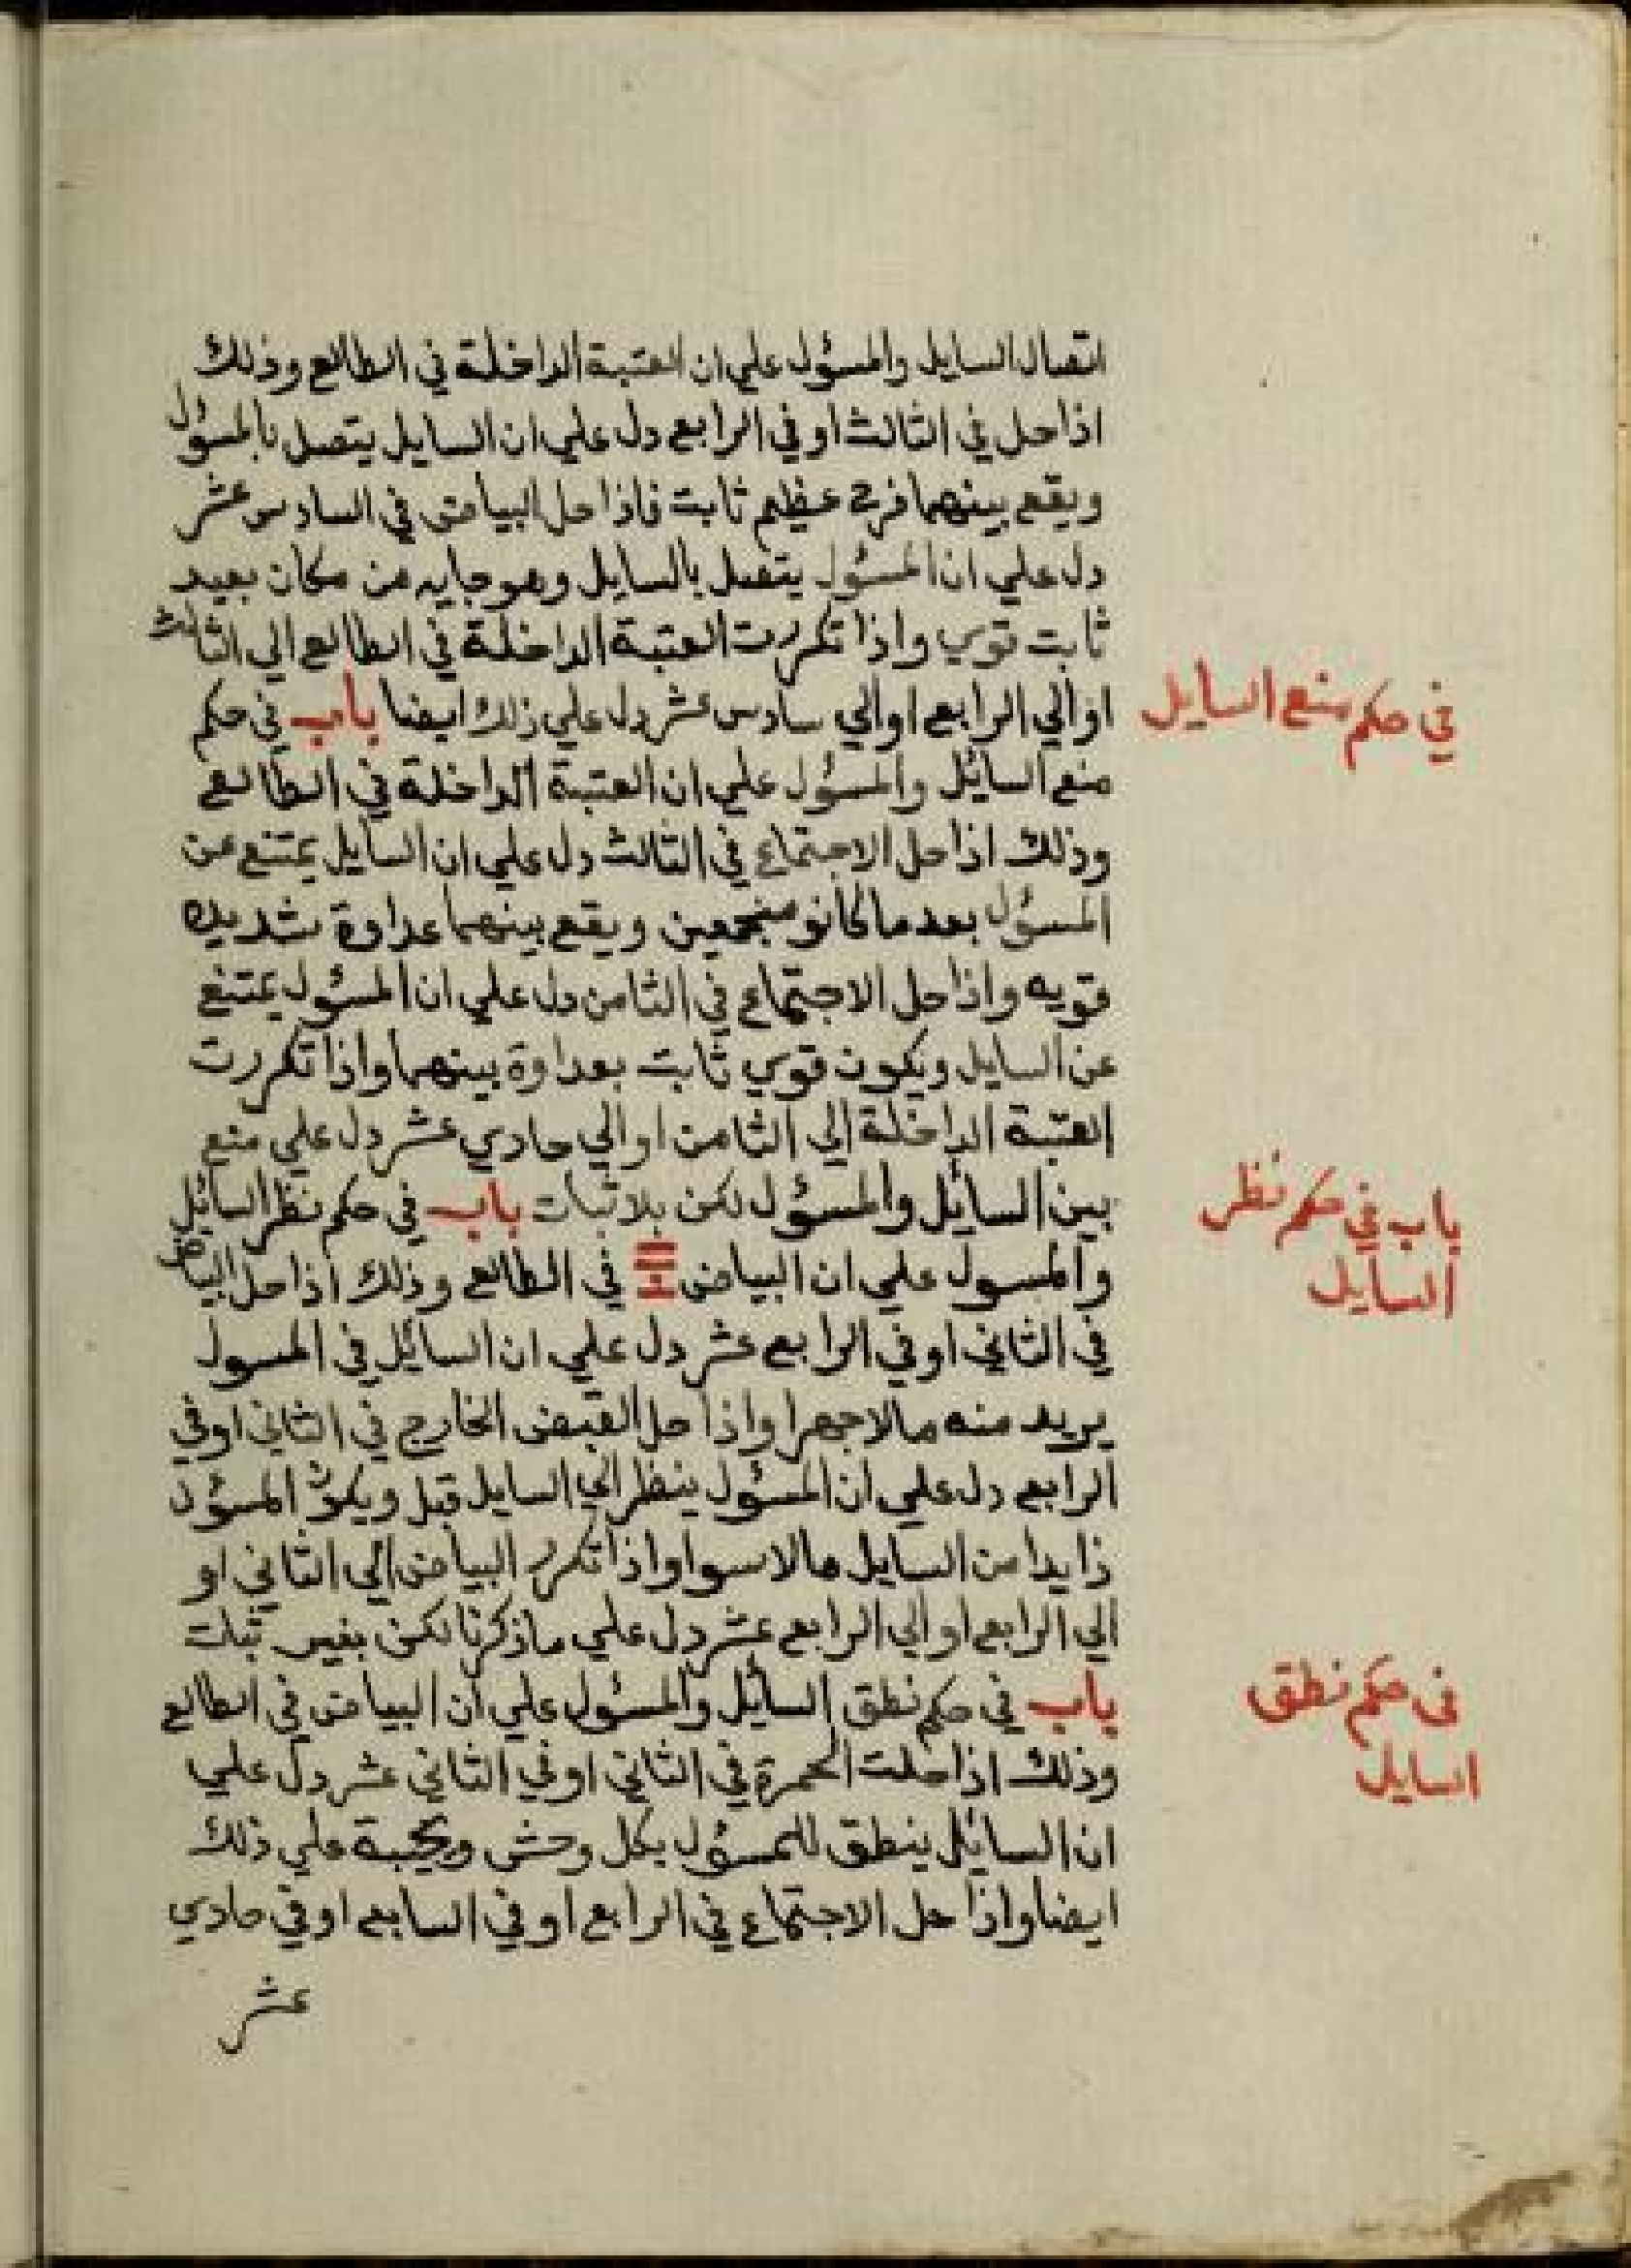 اتصال السايل والمسؤل علي ان العتبة الداخلة في الطالع وذلك
اذا حل في الثالث او في الرابع دل علي ان السايل يتصل بالمسؤل
ويقع بينهما فرح عظيم ثابت فاذا حل البياض في السادس عشر
دل علي ان المسؤل يتصل بالسايل وهو جايه من مكان بعيد
ثابت قوي واذا تكررت العتبة الداخلة في الطالع الي الثالث
او الي الرابع او الي سادس عشر دل علي ذلك ايضا باب في حكم
في حكم منع السايل
منع السائل والمسؤل علي ان العتبة الداخلة في الطالع
وذلك اذا حل الاجتماع في الثالث دل علي ان السايل يمتنع عن
المسؤل بعد ما كانو منجمعين ويقع بينهما عداوة شديده
قويه واذا حل الاجتماع في الثامن دل علي ان المسؤل يمتنع
عن السايل ويكون قوي ثابت بعداوة بينهما واذا تكررت
العتبة الداخلة الي الثامن او الي حادي عشر دل علي منع
بين السائل والمسؤل لكن بلا ثبات باب في حكم نظر السائل
باب في حكم نظر
السايل
والمسول علي ان البياض في الطالع وذلك اذا حل البياض
في الثاني او في الرابع عشر دل علي ان السائل في المسول
يريد منه مالا جهرا واذا حل القبض الخارج في الثاني او في
الرابع دل علي ان المسؤل ينظر الي السايل قبل ويكون المسؤل
زايدا من السايل مالا سوا واذا تكرر البياض الي الثاني او
الي الرابع او الي الرابع عشر دل علي ما ذكرنا لكن بغير ثبات
باب في حكم نطق السائل والمسئول علي ان البياض في الطالع
في حكم نطق
السايل
وذلك اذا حلت الحمرة في الثاني او في الثاني عشر دل علي
ان السائل ينطق للمسؤل بكل وحش ويجيبة علي ذلك
ايضا واذا حل الاجتماع في الرابع او في السابع او في حادي
عشر